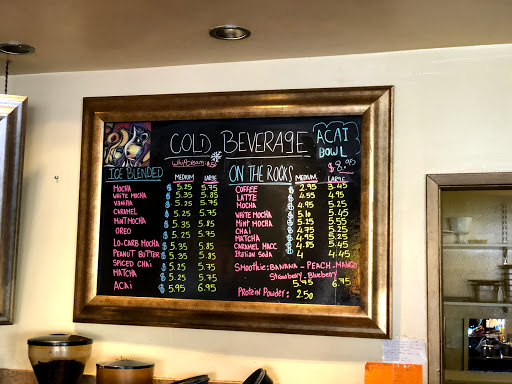 COLD BEVERAGE
Whipcream: .50
ACAI
BOWL
$8.95
ICE BLENDED MEDIUM LARGE
MOCHA $ 5.25 5.75
WHITE MOCHA $ 5.35 5.85
VANILLA $ 5.25 5.75
CARAMEL $ 5.25 5.75
MINT MOCHA $ 5.35 5.85
OREO $ 5.25 5.75
LO-CARB MOCHA $ 5.35 5.85
PEANUT BUTTER $ 5.35 5.85
SPICED CHAI $ 5.25 5.75
MATCHA $ 5.25 5.75
ACAI $ 5.95 6.95
ON THE ROCKS MEDIUM LARGE
COFFEE $ 2.95 3.45
LATTE $ 4.45 4.95
MOCHA $ 4.95 5.25
WHITE MOCHA $ 5.10 5.45
MINT MOCHA $ 5.25 5.55
CHAI $ 4.75 5.25
MATCHA $ 4.95 5.25
CARAMEL MACC $ 4.85 5.45
Italian Soda $ 4 4.45
SMOOTHIE: BANANA - PEACH - MANGO
Strawberry - Blueberry
5.95 6.95
PROTEIN POWDER: 2.50